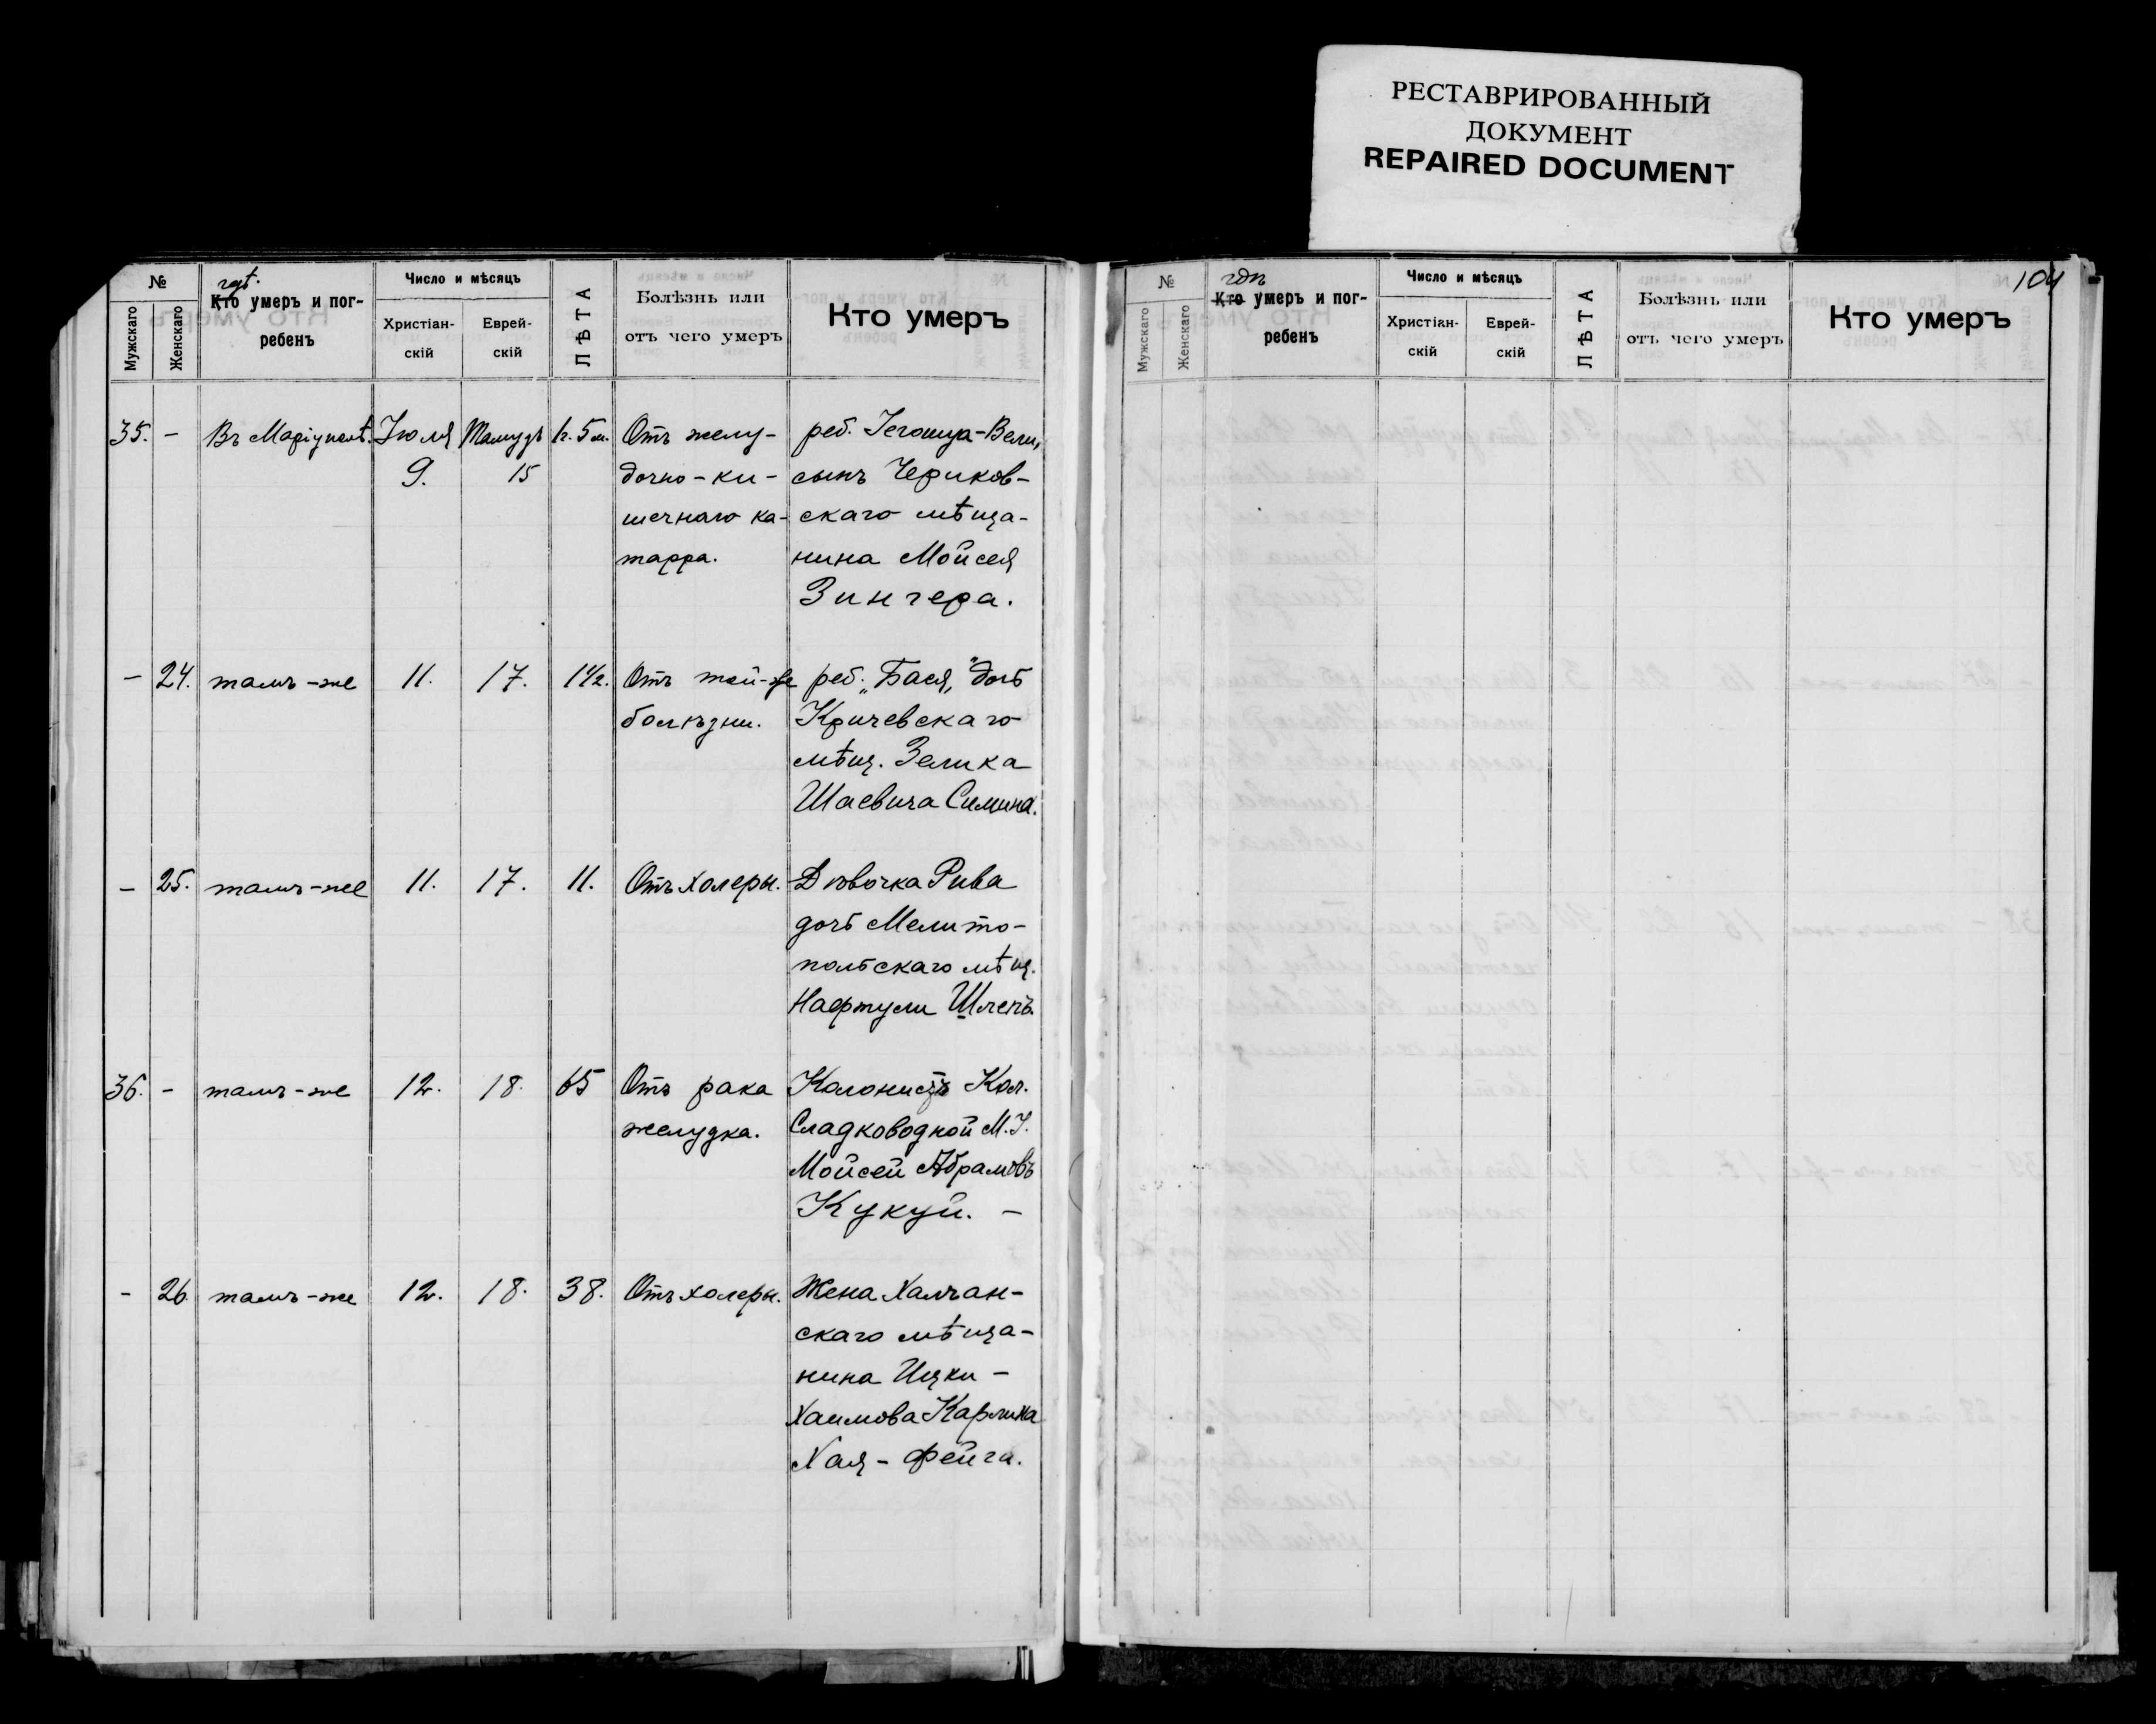 РЕСТАВРИРОВАННЫЙ
ДОКУМЕНТ
REPAIRED DOCUMENT
№
Мужскаго
Женскаго
гдѣ.
Кто умеръ и пог-
ребенъ
Число и мѣсяцъ
Христіан-
скій
Еврей-
скій
ЛѢТА
Болѣзнь или
отъ чего умеръ
Кто умеръ
35. - Въ Маріуполѣ. Іюля Тамузъ 1г. 5м. Отъ желу- реб. Іегошуа-Велв,
9. 15 дочно-ки- сынъ Чериков-
шечнаго ка- скаго мѣща-
тарра. нина Мойсея
Зингера.
- 24. тамъ-же 11. 17. 1 1/2. Отъ той-же реб. „Бася," дочь
болѣзни. Кричевскаго
мѣщ. Зелика
Шаевича Симина.
- 25. тамъ-же 11. 17. 11. Отъ холеры. Дѣвочка Рива
дочь Мелито-
польскаго мѣщ.
Нафтули Шлепъ.
36. - тамъ-же 12. 18. 65 Отъ рака Колонистъ Кол.
желудка. Сладководной М.У.
Мойсей Абрамовъ
Кукуй. -
- 26 тамъ-же 12. 18. 38. Отъ холеры. Жена Халчан-
скаго мѣща-
нина Ицки-
Хаимова Карлика
Хая-Фейга.
104
№
Мужскаго
Женскаго
гдѣ
Кто умеръ и пог-
ребенъ
Число и мѣсяцъ
Христіан-
скій
Еврей-
скій
ЛѢТА
Болѣзнь или
отъ чего умеръ
Кто умеръ